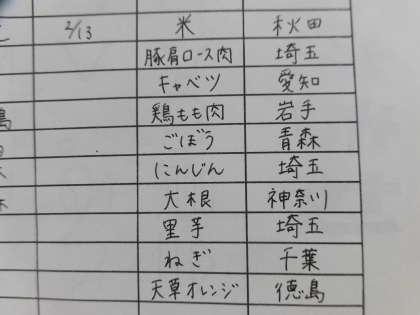 2/13 米 秋田
豚肩ロース肉 埼玉
キャベツ 愛知
鶏もも肉 岩手
ごぼう 青森
にんじん 埼玉
大根 神奈川
里芋 埼玉
ねぎ 千葉
天草オレンジ 徳島